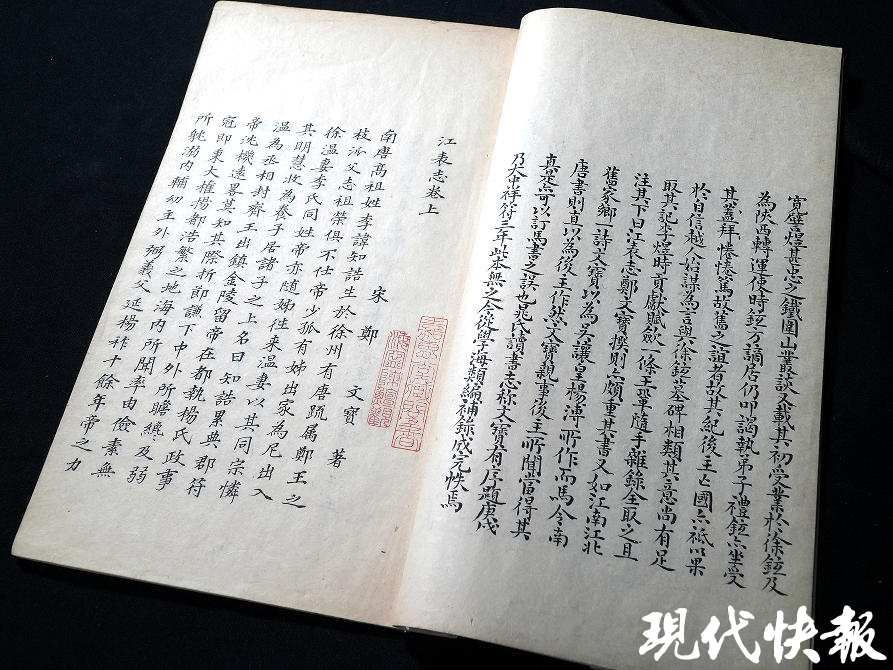 寬譬煌甚忠之鐵圍山叢談又載其初受業於徐鉉及
為陝西轉運使時鉉方謫居仍叩謁執弟子禮鉉亦坐受
其蓋拜惓惓篤故舊之誼者故其紀後主亡國亦祗以果
於自信越人始謀為言與徐鉉墓碑相類其意尚有足
取其記李煌時貢獻賦斂一條王鞏隨手雜錄全取之且
注其下曰江表志鄭文寶撰則亦頗重其書又如江南江北
舊家鄉一詩文寶以為吳讓皇楊溥所作而馬令南
唐書則直以為後主作然文寶親事後主所聞當得其
真是亦可以訂馬書之誤也晁氏讀書志稱文寶有序題庚戌
乃大中祥符三年此本無之今從學海類編補錄成完帙焉
江表志卷上
宋 鄭 文寶 著
南唐高祖姓李諱知誥生於徐州有唐疏属鄭王之
枝派父志祖榮俱不仕帝少孤有姊出家為尼出入
徐溫妻李氏同姓帝亦隨姊往來溫妻以其同宗憐
其明慧收為養子居諸子之上名曰知誥累典郡符
溫為丞相封齊王出鎮金陵留帝在都執楊氏政事
帝沈機遠畧莫知其際折節謙下中外所瞻繞及弱
冠即秉大權楊都浩繁之地海内所聞率由儉素無
所耽溺内輔幼主外弼義父延楊祚十餘年帝之力
現代快報